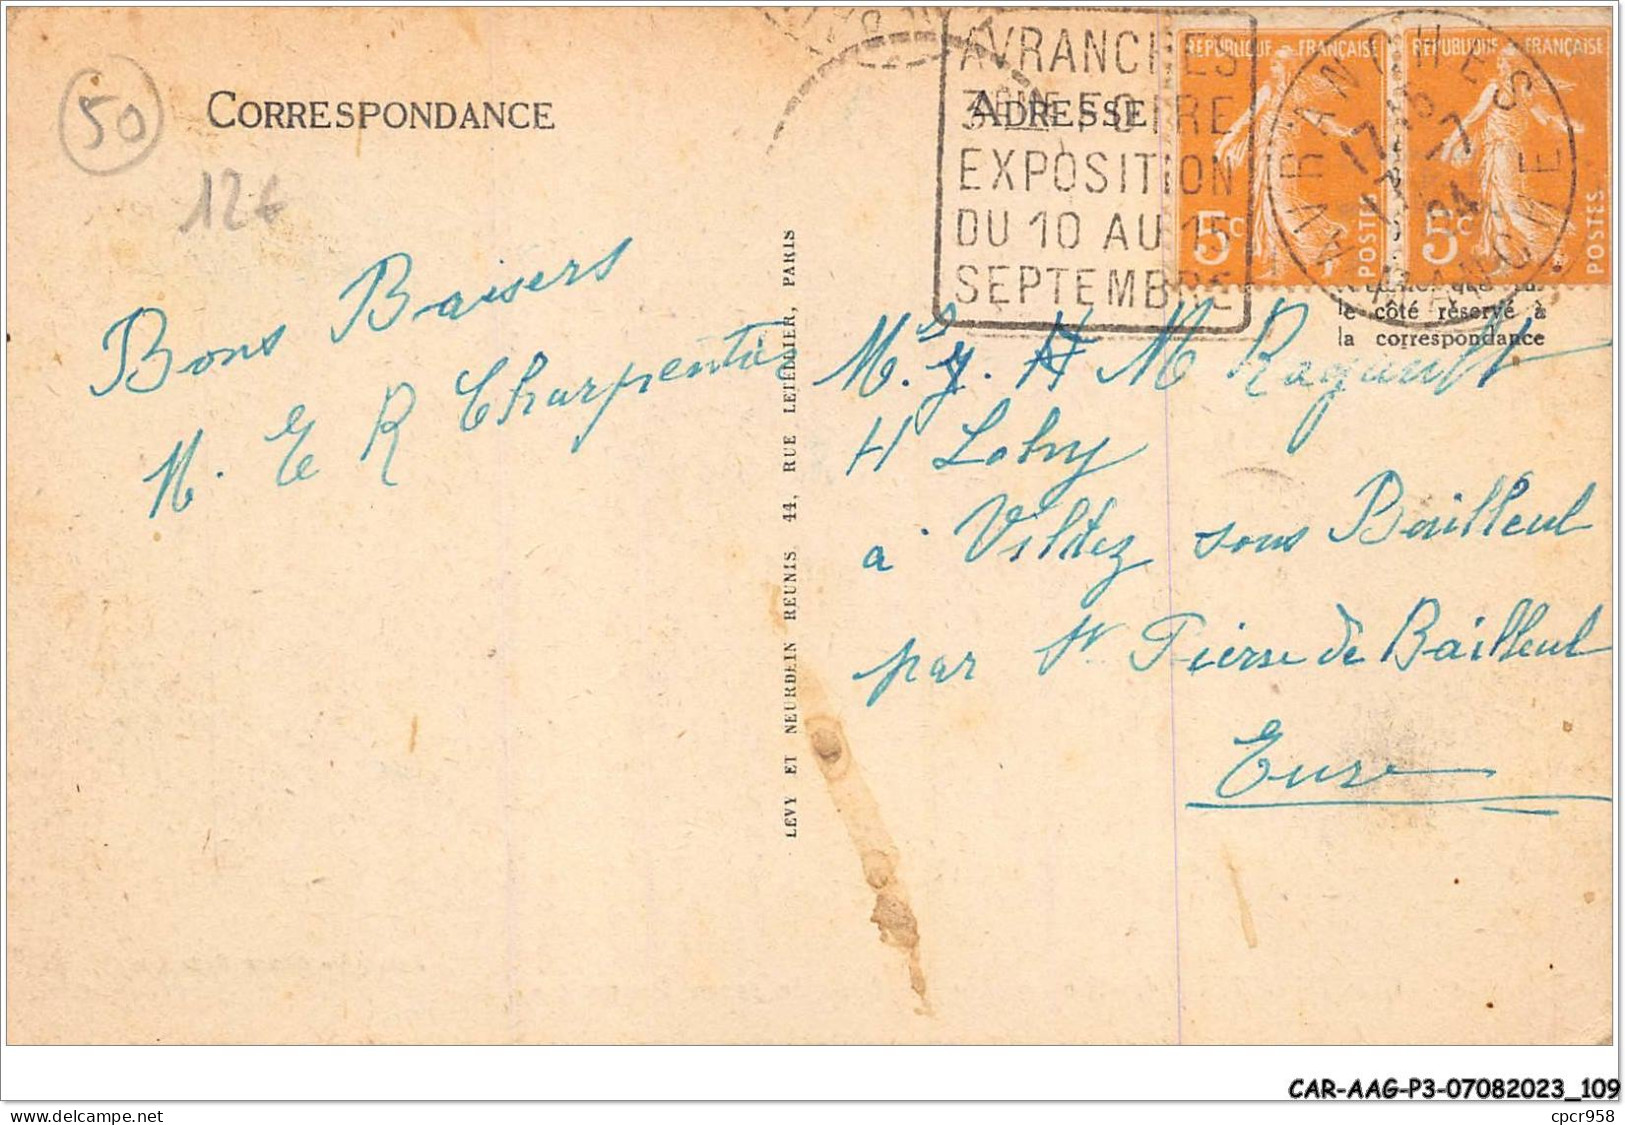 50
CORRESPONDANCE
12€
Bons Baisers
M. E R Charpentier
LEVY ET NEURDEIN REUNIS. 44, RUE LETELLIER, PARIS
AVRANCHES
3EME FOIRE
EXPOSITION
DU 10 AU 15
SEPTEMBRE
ADRESSE
REPUBLIQUE FRANÇAISE
5c
POSTES
REPUBLIQUE FRANÇAISE
5c
POSTES
AVRANCHES
MANCHE
le côté réservé à
la correspondance
M. M Ragault
H
à sous Bailleul
par St Pierre de Bailleul
Eure
CAR-AAG-P3-07082023_109
www.delcampe.net
cpcr958